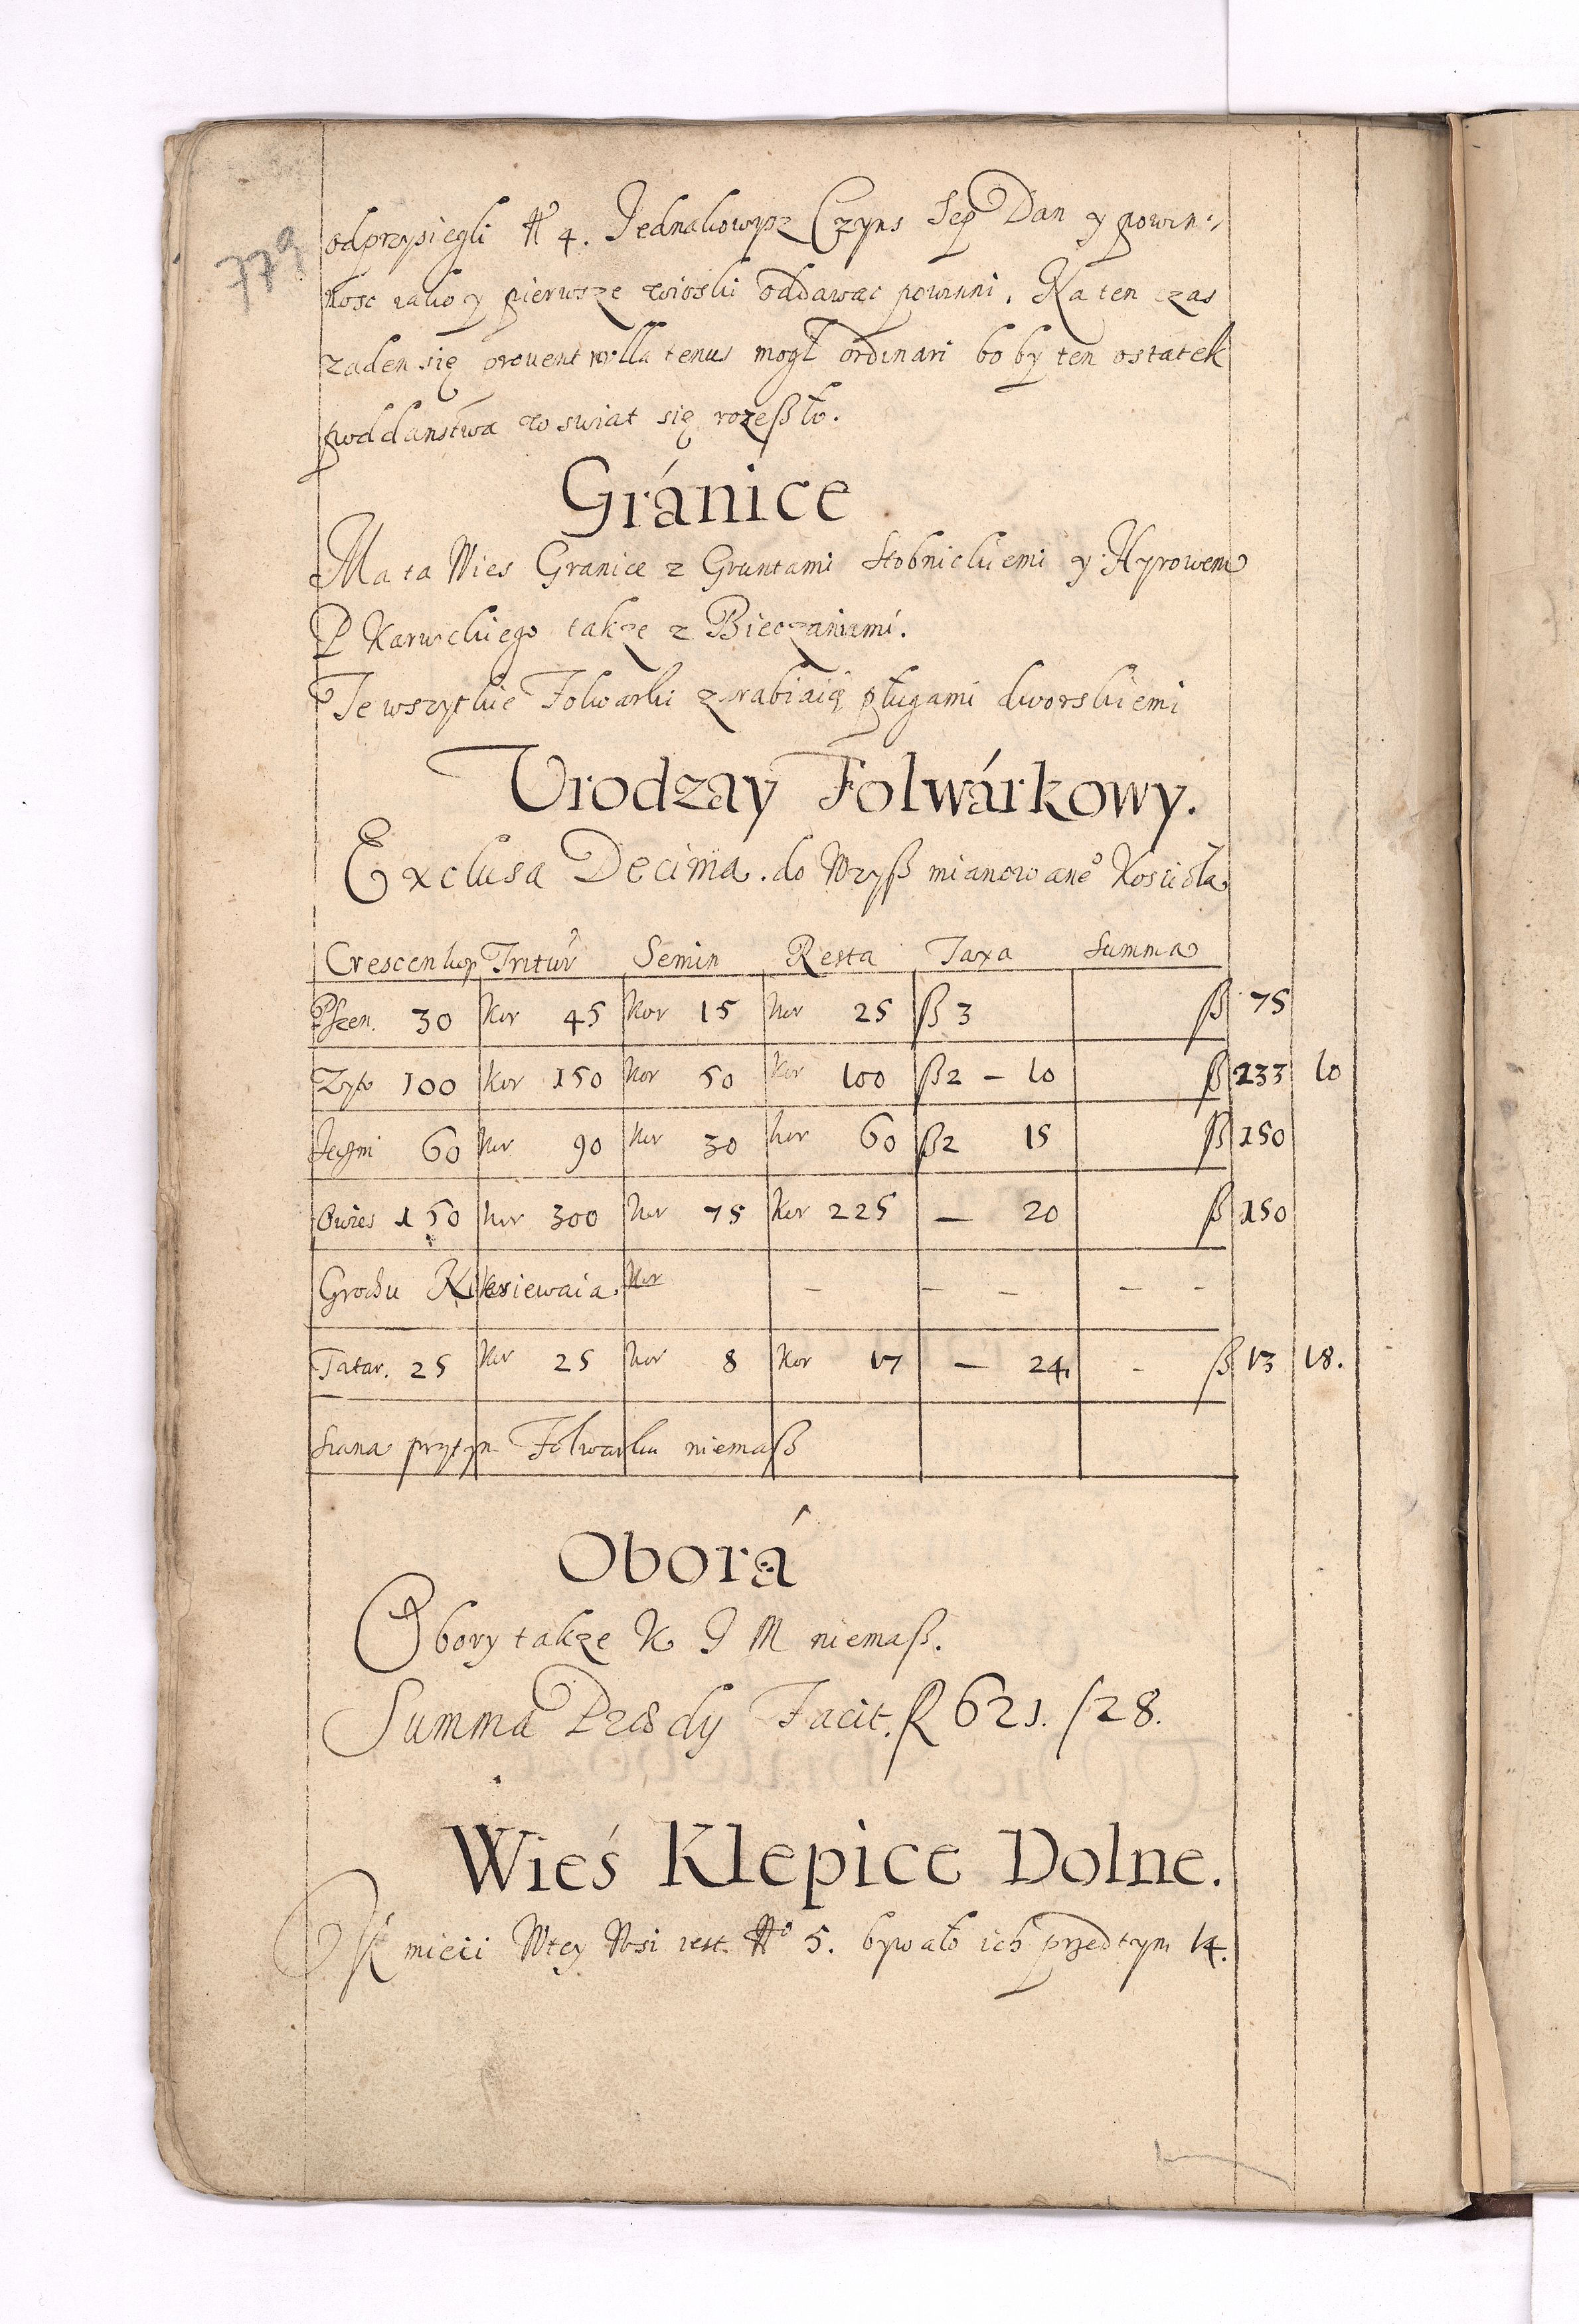 779
odprzysiegli No 4. Jednakowysz Czyns Sep Dan y powin:
nosc iako y pierwsze wioski oddawac powinni. Na ten czas
zaden się prouent villa tenus mogł ordinari bo by ten ostatek
poddanstwa w swiat się rozeßło.
Gránice
Ma ta Wies Granice z Gruntami Stobnickiemi y Hyrowem
P Karwckiego także z Bieczaniami.
Te wszytkie Folwarki zarabiaią pługami dworskiemi
Urodzay Folwárkowy.
Exclusa Decima. do Wzyß mianowane° Kosciola
Crescen kop Tritur Semin Resta Taxa Summa
Pszen. 30 Kor 45 Kor 15 Kor 25 ß 3 ß 75
Zyto 100 Kor 150 Kor 50 Kor 100 ß 2 – 10 ß 233 10
Jęczmi 60 Kor 90 Kor 30 kor 60 ß 2 15 ß 150
Owies 150 kor 300 Kor 75 Kor 225 — 20 ß 150
Grochu Niesiewaia. Kor – – – – -
Tatar. 25 Kor 25 kor 8 Kor 17 — 24. - ß 13 18.
Siana przytym Folwarku niemaß
Oborá
Obory także K J M niemaß.
Summa Facit. 621. /28.
Wieś Klepice Dolne.
Kmieci Wtey Wsi iest. No 5. bywało ich przedtym 14.